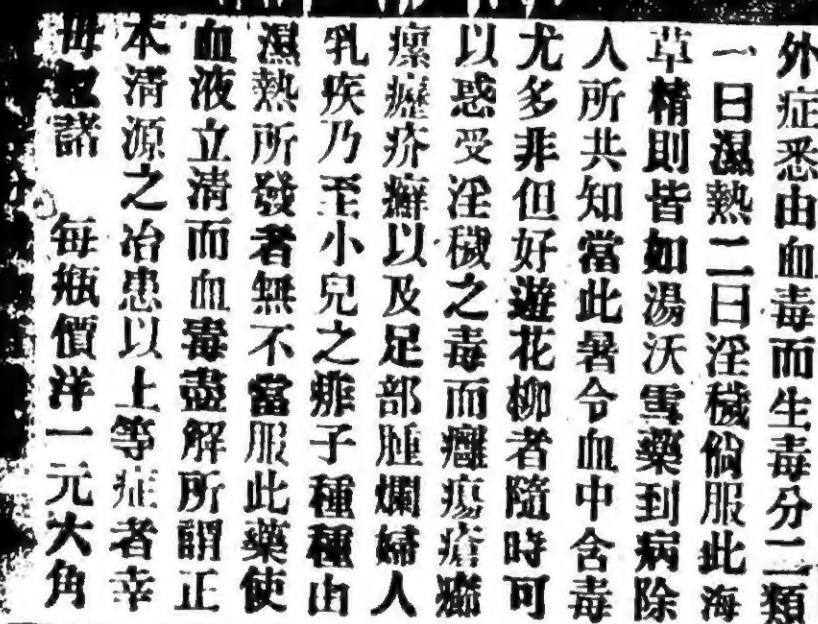 外症悉由血毒而生毒分二類
一曰濕熱二曰淫穢倘服此海
草精則皆如湯沃雪藥到病除
人所共知當此暑令血中含毒
尤多非但好遊花柳者隨時可
以惑受淫穢之毒而癰瘍瘡
瘰癧疥癬以及足部腫爛婦人
乳疾乃至小兒之疿子種種由
濕熱所發者無不當服此藥使
血液立清而血毒盡解所謂正
本清源之冶患以上等症者幸
毋忽諸 每瓶價洋一元大角